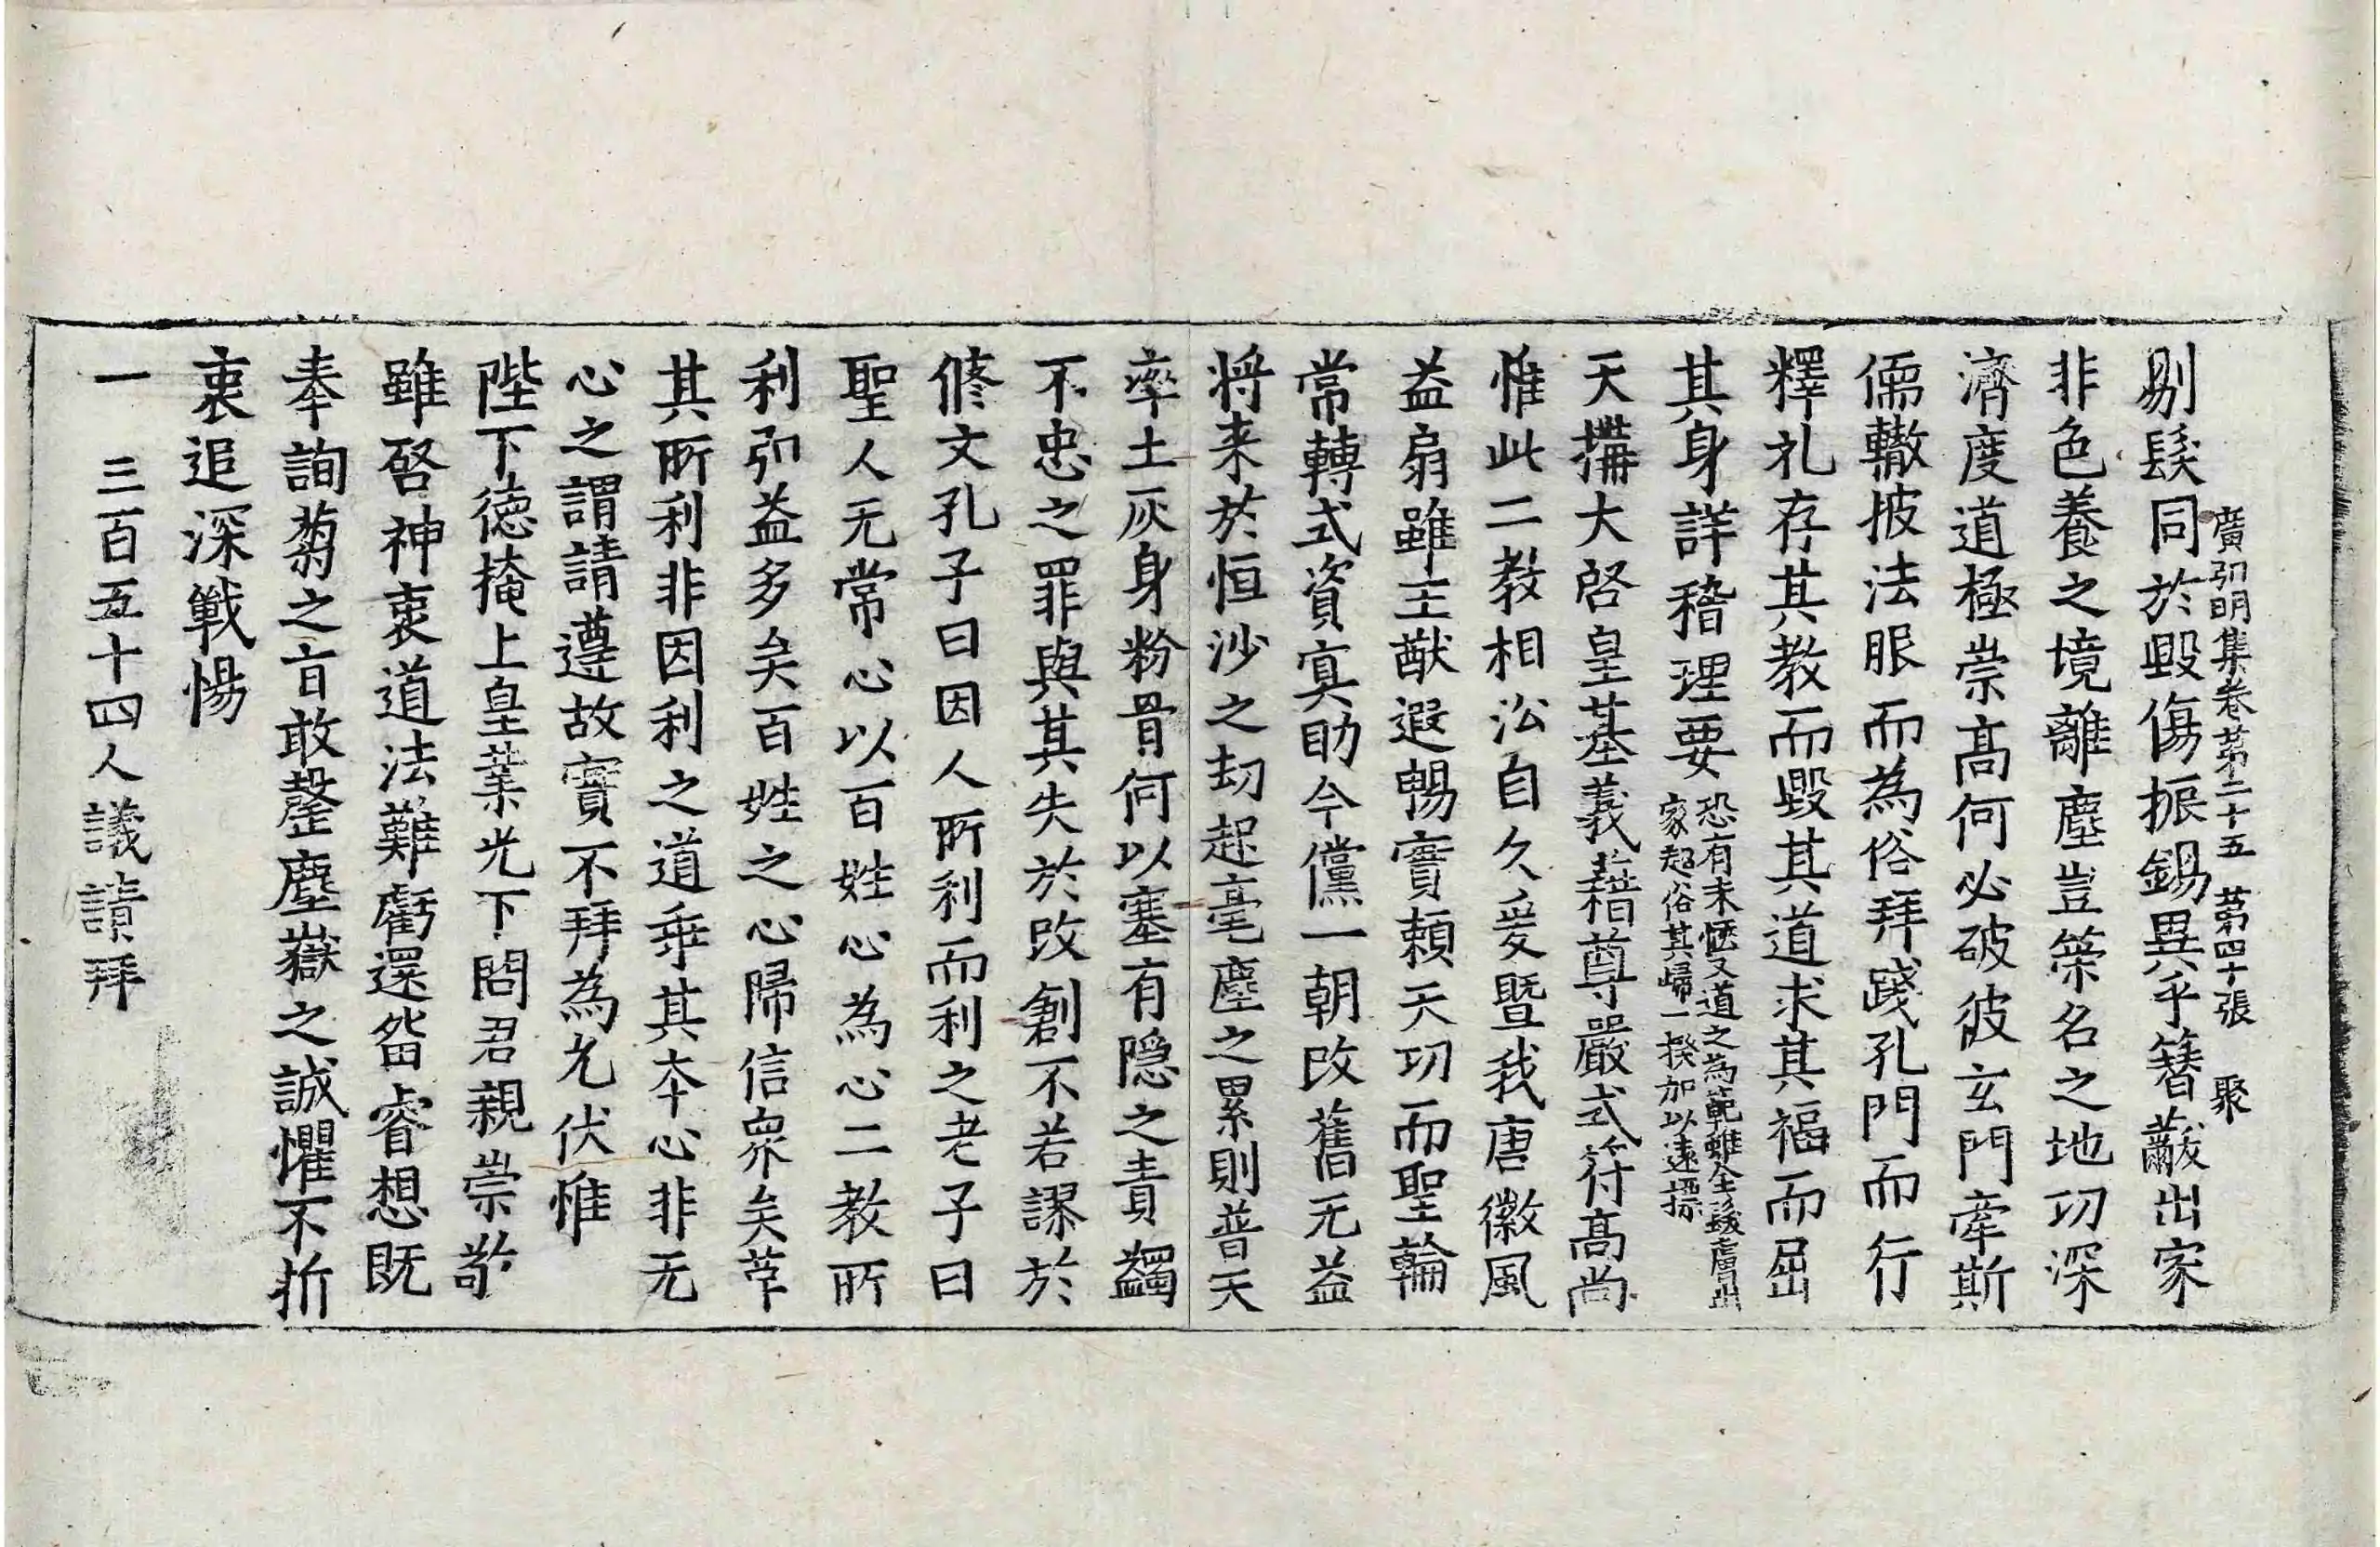 廣弘明集卷第二十五 第四十張 聚
剔髮同於毀傷振錫異乎簪黻出家
非色養之境離塵豈策名之地功深
濟度道極崇高何必破彼玄門牽斯
儒轍披法服而為俗拜踐孔門而行
釋礼存其教而毀其道求其福而屈
其身詳稽理要
恐有未愜又道之為範雖全髮膚出
家超俗其歸一揆加以遠標
天構大啓皇基義藉尊嚴式符高尚
惟此二教相沿自久爰暨我唐徽風
益扇雖王猷遐暢實頼天功而聖輪
常轉式資冥助今儻一朝改舊无益
将来於恒沙之刧起毫塵之累則普天
率土灰身粉骨何以塞有隱之責蠲
不忠之罪與其失於改創不若謬於
修文孔子曰因人所利而利之老子曰
聖人无常心以百姓心為心二教所
利弘益多矣百姓之心歸信衆矣革
其所利非因利之道乖其本心非无
心之謂請遵故實不拜為允伏惟
陛下德掩上皇業光下問君親崇敬
雖啓神衷道法難虧還留睿想既
奉詢蒭之旨敢罄塵嶽之誠懼不折
衷追深戰惕
一 三百五十四人議請拜